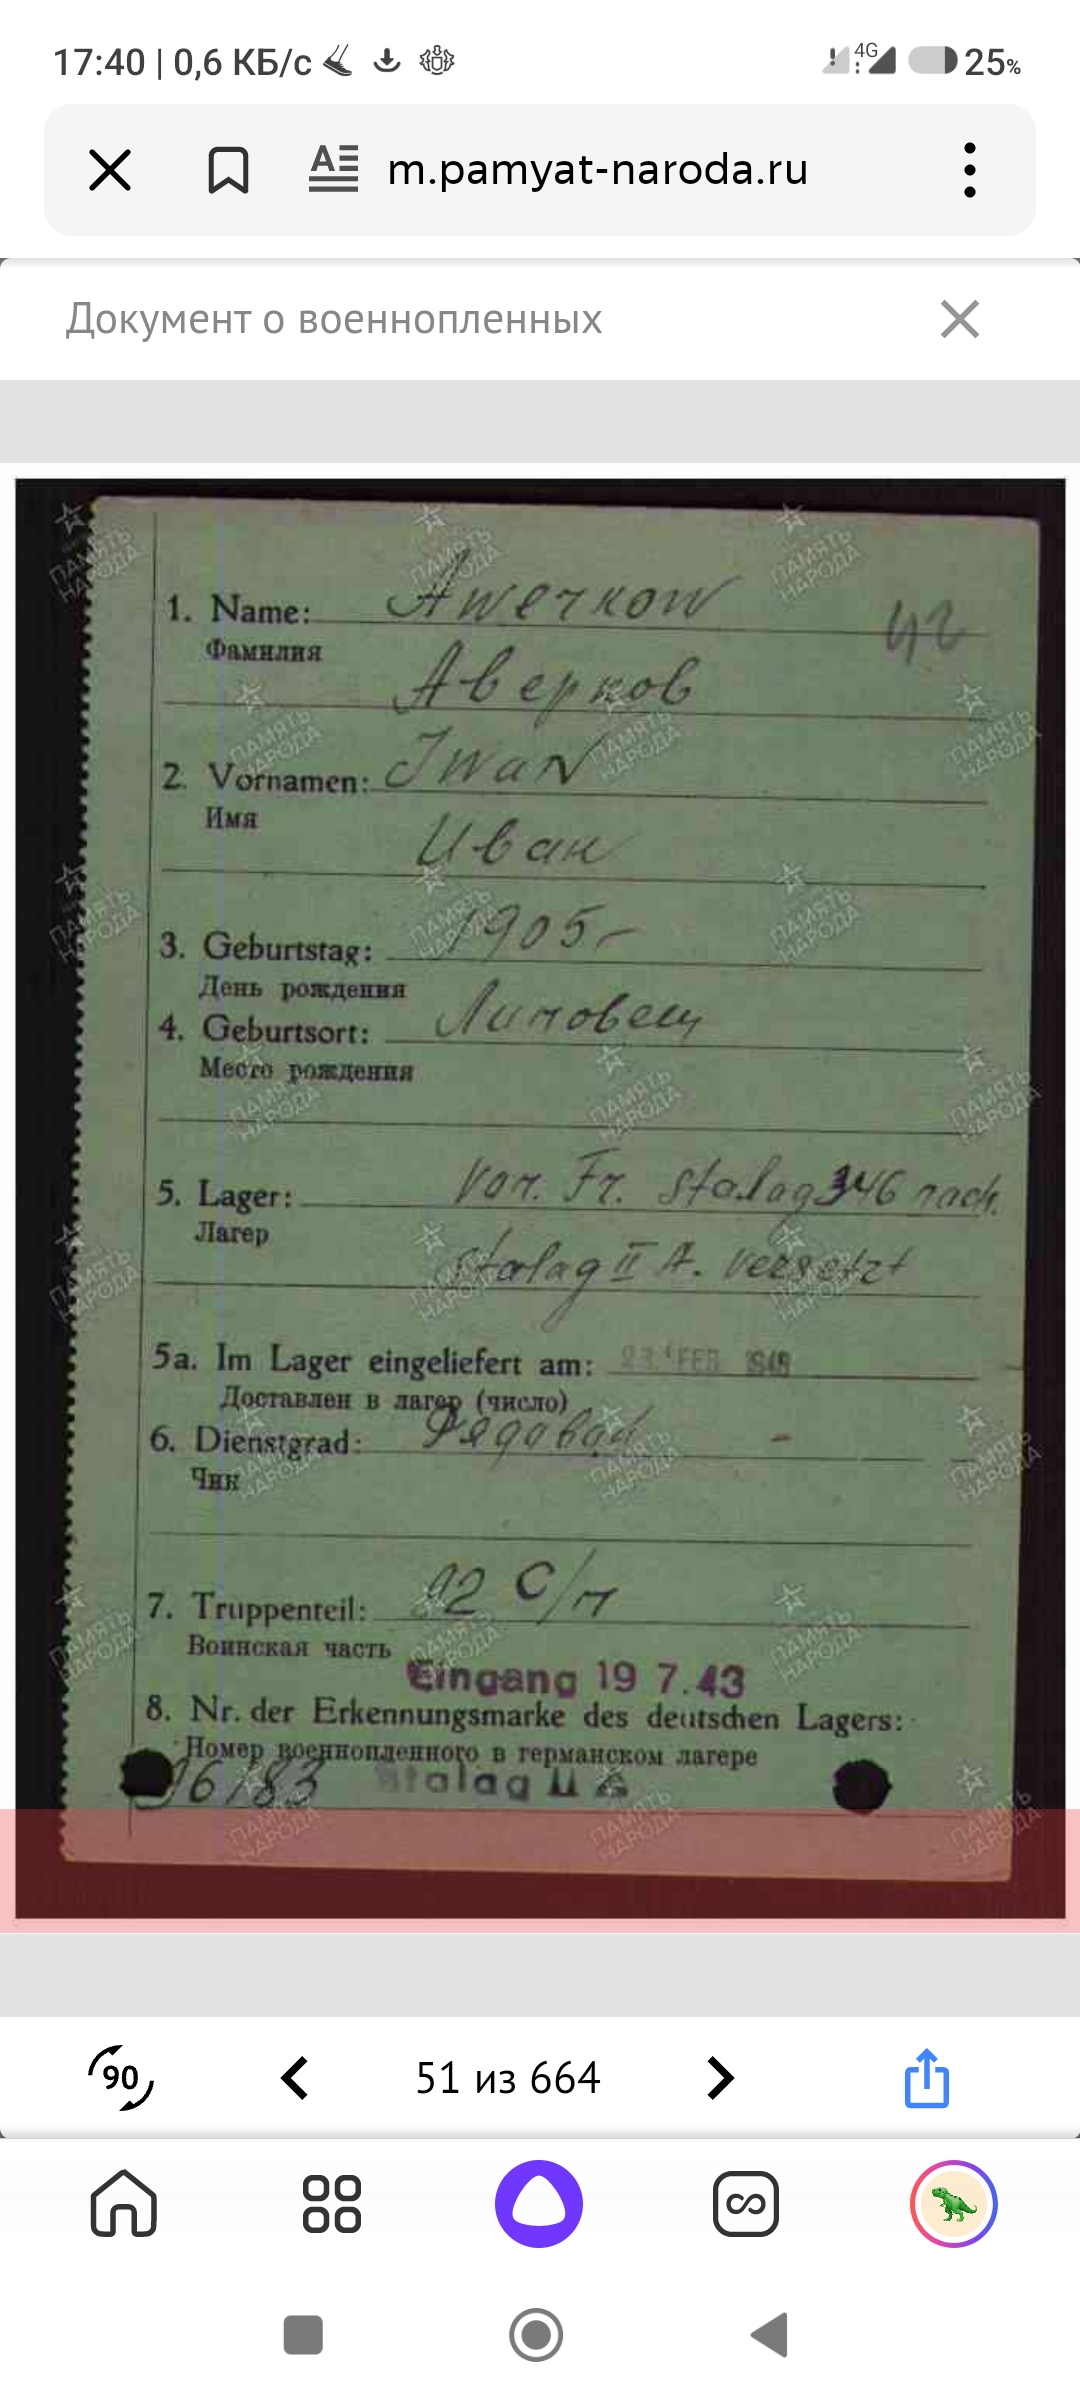 17:40 | 0,6 КБ/с 4G 25%
m.pamyat-naroda.ru
Документ о военнопленных
1. Name: Awerkow
42
Фамилия
Аверков
2. Vornamen: Iwan
Имя
Иван
3. Geburtstag: 1905
День рождения
4. Geburtsort:
Место рождения
5. Lager: Von. Fr. Stalag 346 nach.
Лагер
Stalag II A. versetzt
5a. Im Lager eingeliefert am: FEB
Доставлен в лагер (число)
6. Dienstgrad: Рядовой
Чик
7. Truppenteil: 92 С/п
Воинская часть
Eingang 19 7.43
8. Nr. der Erkennungsmarke des deutschen Lagers:
Номер военнопленного в германском лагере
Stalag II A
ПАМЯТЬ НАРОДА
90
51 из 664